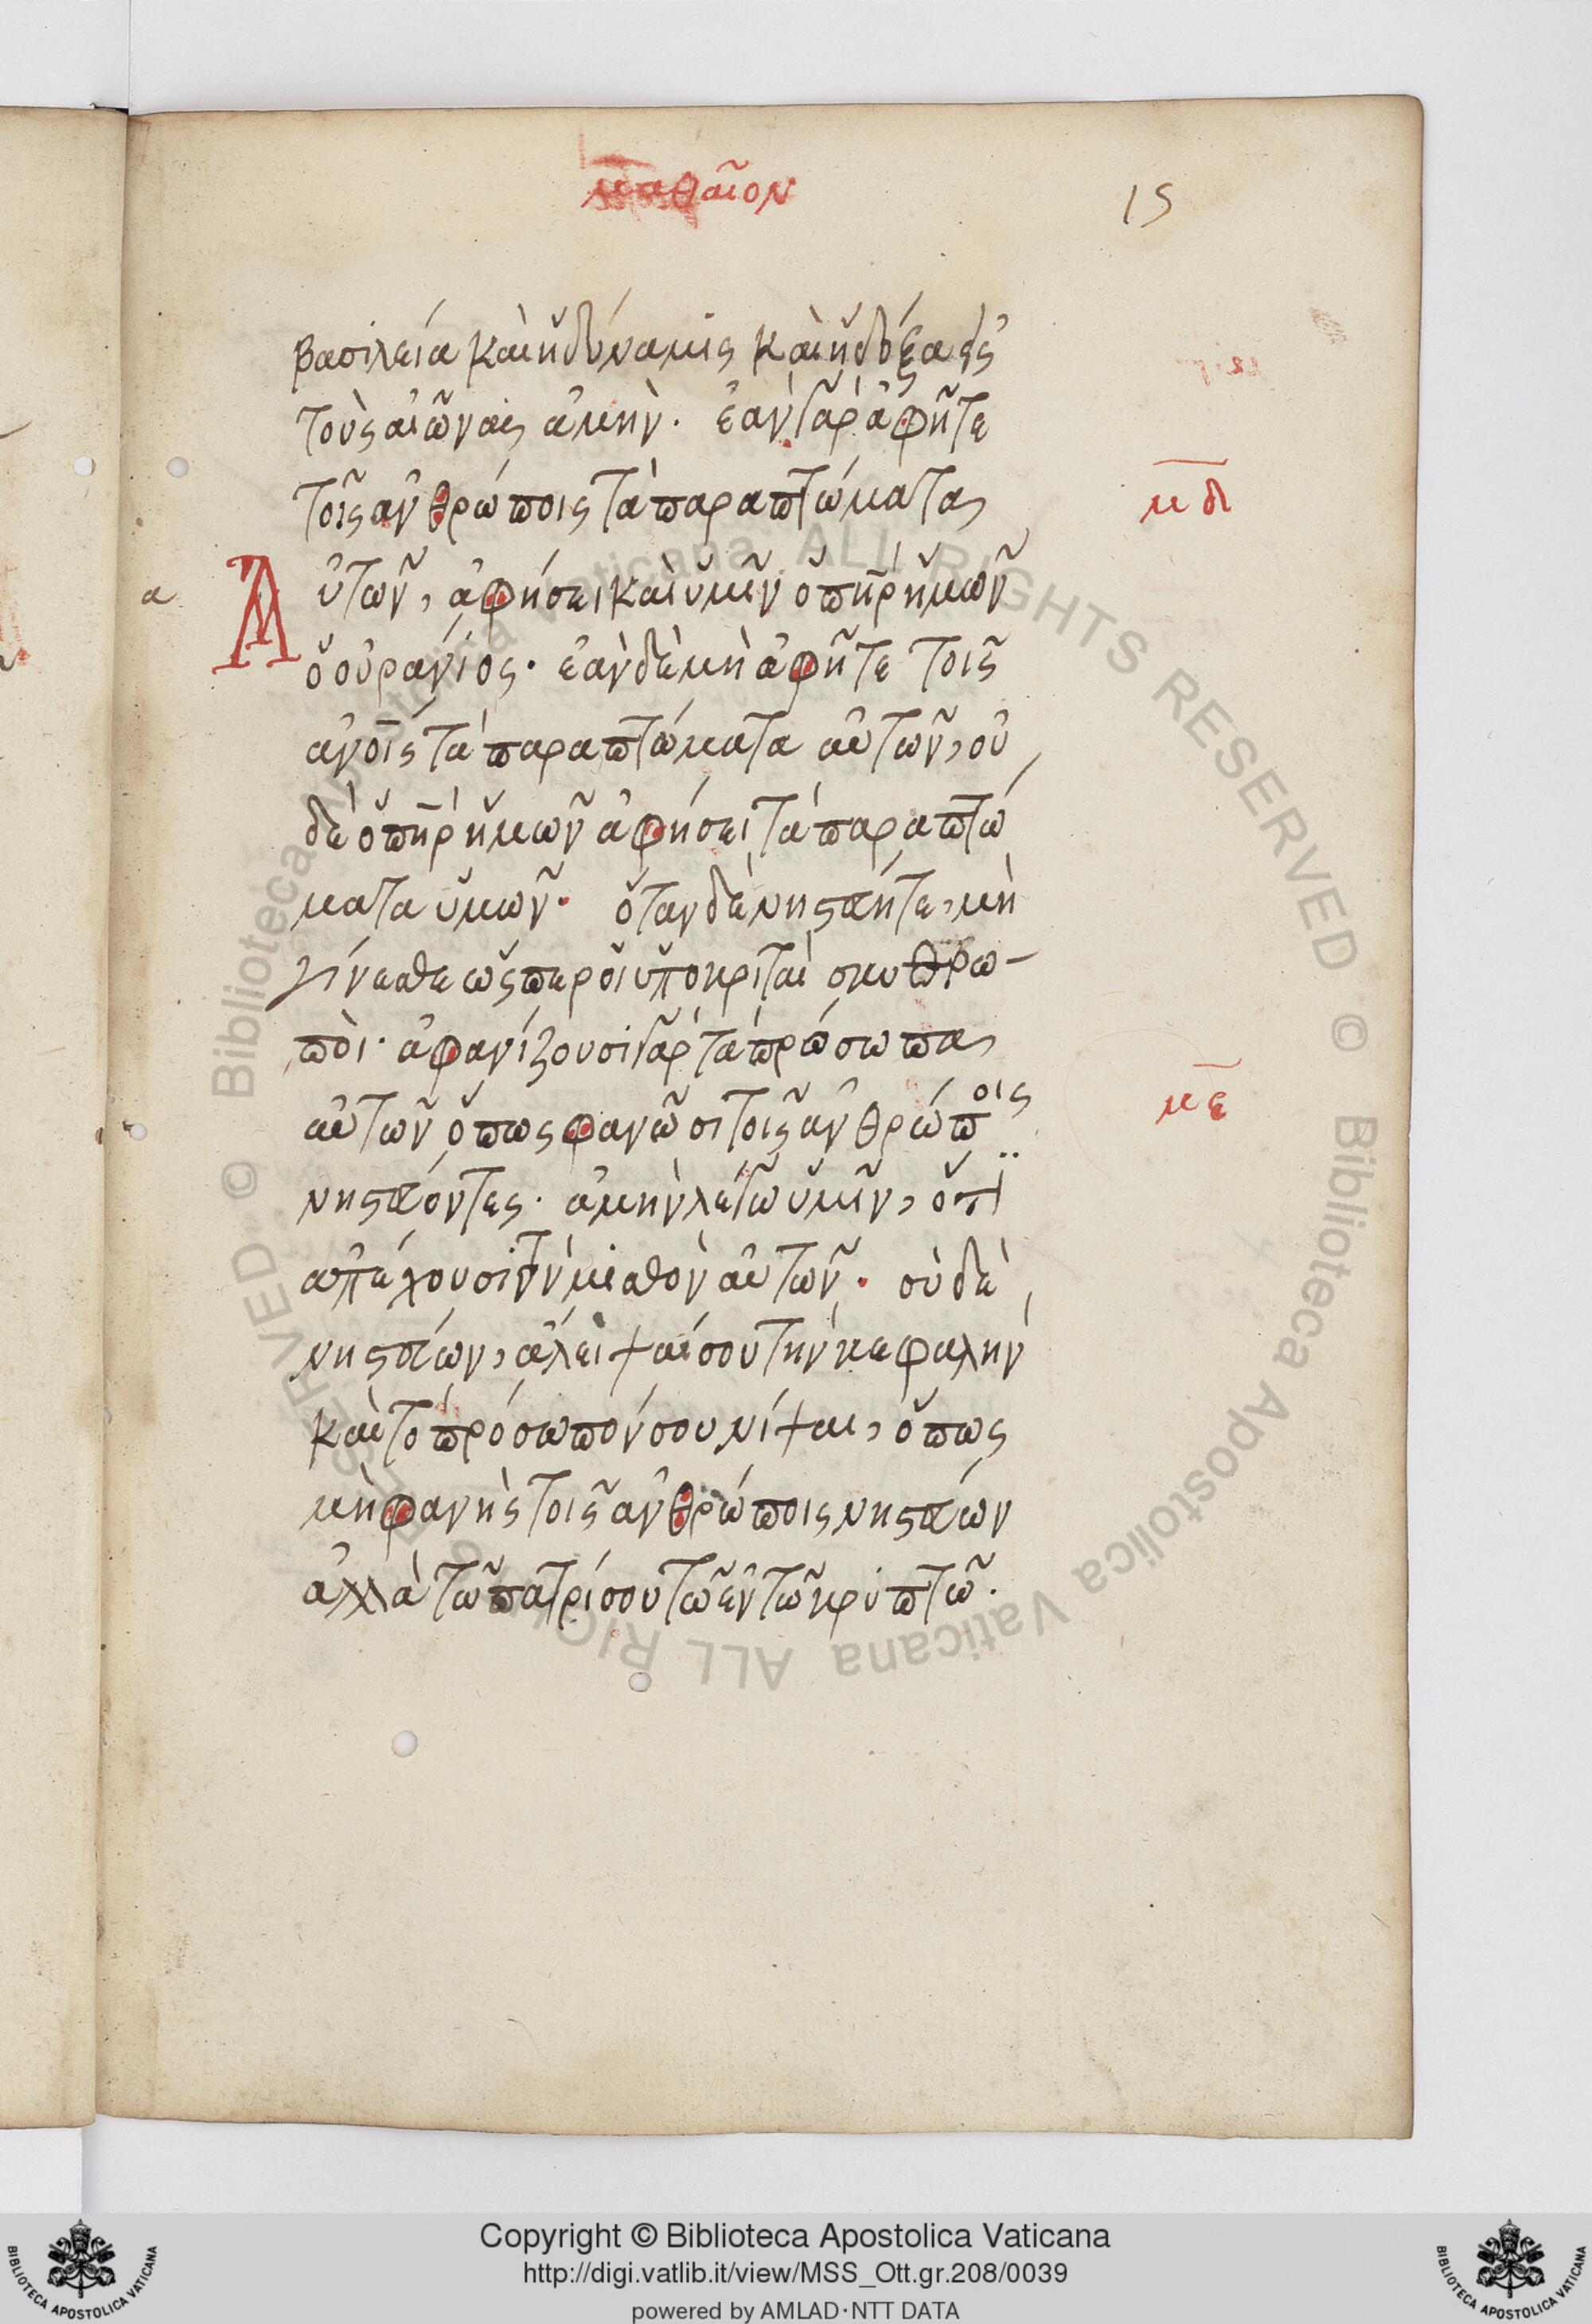 μαθαῖον
15
βασιλεία καὶ ἡ δύναμις καὶ ἡ δόξα εἰς
τοὺς αἰῶνας ἀμήν. ἐὰν γὰρ ἀφῆτε
μδ
τοῖς ἀνθρώποις τὰ παραπτώματα
α
Αὐτῶν, ἀφήσει καὶ ὑμῖν ὁ πηρ ἡμῶν
ὁ οὐράνιος. ἐὰν δὲ μὴ ἀφῆτε τοῖς
ἀνοις τὰ παραπτώματα αὐτῶν, οὐ
δὲ ὁ πηρ ἡμῶν ἀφήσει τὰ παραπτώ
ματα ὑμῶν. ὅταν δὲ νηστεύητε, μὴ
γίνεσθε ὥσπερ οἱ ὑποκριταὶ σκυθρω-
ποὶ. ἀφανίζουσι γὰρ τὰ πρόσωπα
με
αὐτῶν ὅπως φανῶσι τοῖς ἀνθρώποις
νηστεύοντες. ἀμὴν λέγω ὑμῖν, ὅτι
ἀπέχουσι τὸν μισθὸν αὐτῶν. σὺ δὲ
νηστεύων, ἄλειψαί σου τὴν κεφαλὴν
καὶ τὸ πρόσωπόν σου νίψαι, ὅπως
μὴ φανῇς τοῖς ἀνθρώποις νηστεύων
ἀλλὰ τῶ πατρί σου τῶ ἐν τῶ κρυπτῶ.
© Biblioteca Apostolica Vaticana ALL RIGHTS RESERVED
Copyright © Biblioteca Apostolica Vaticana
http://digi.vatlib.it/view/MSS_Ott.gr.208/0039
powered by AMLAD·NTT DATA
BIBLIOTECA APOSTOLICA VATICANA
BIBLIOTECA APOSTOLICA VATICANA